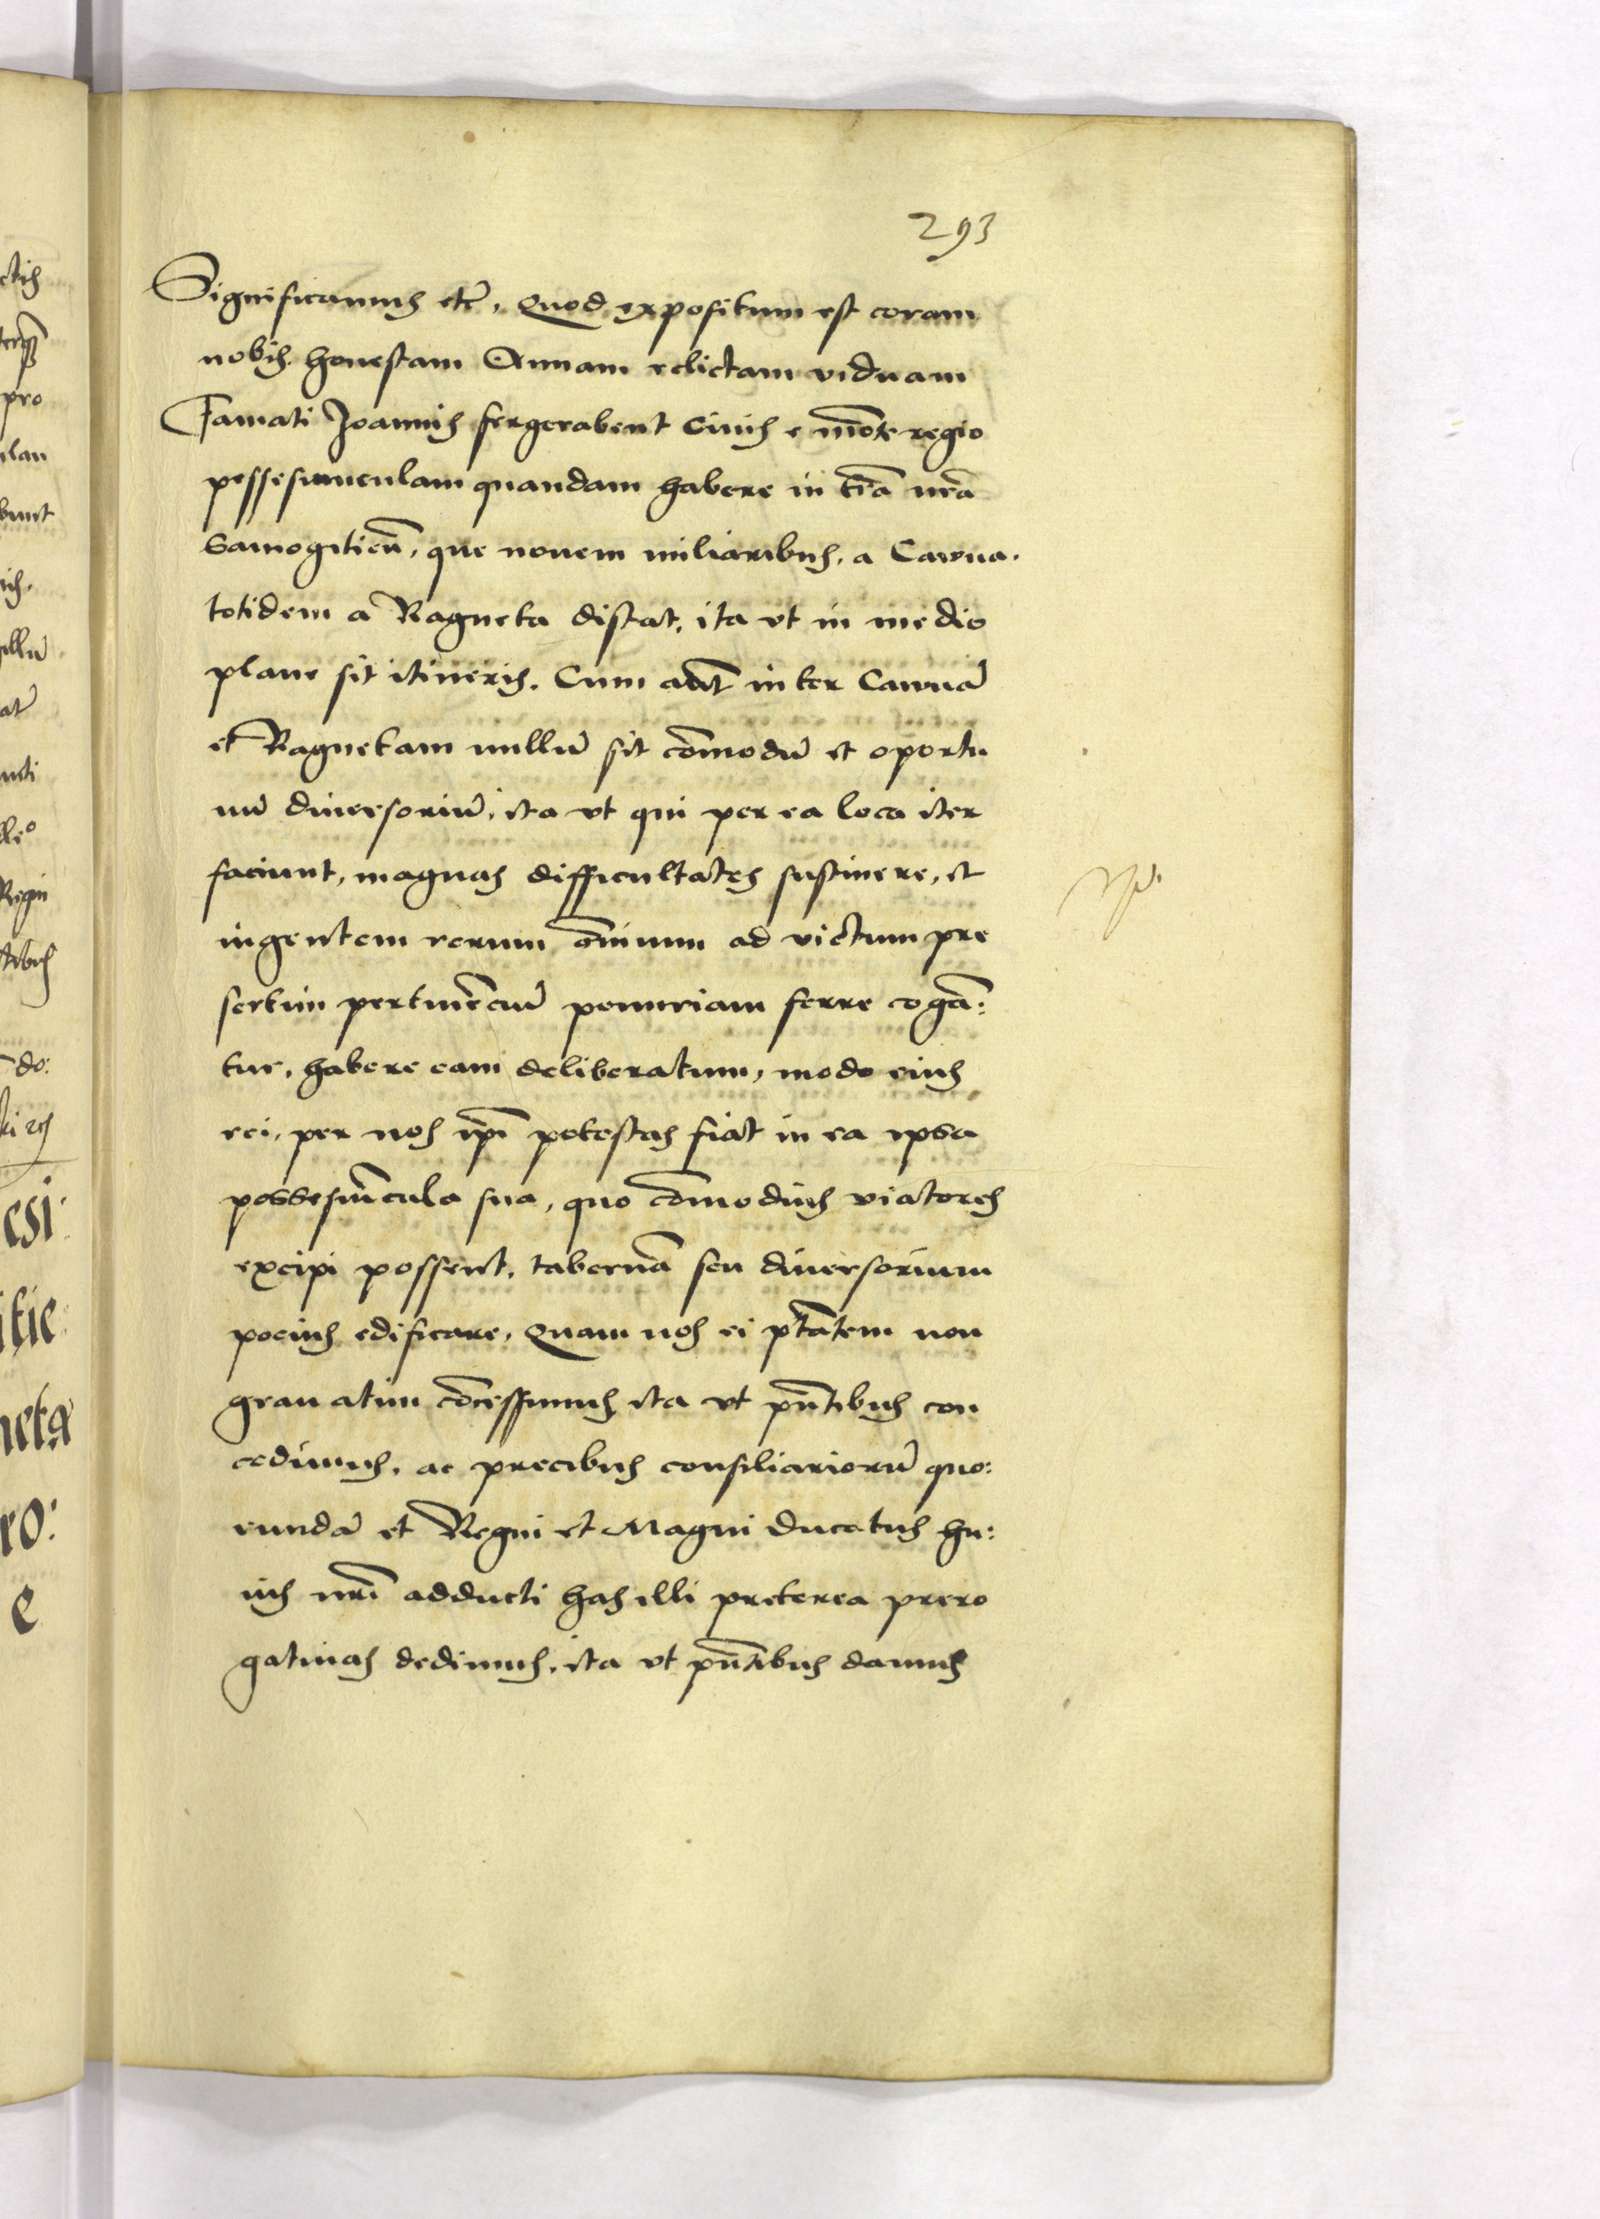 293
Significamus etc̃, Quod expositum est coram
nobis. honestam Annam relictam viduam
Famati Joannis fergerabent Ciuis e mõte regio
possesiunculam quandam habere in trã nrã
Samogitieñ, que nouem miliaribus, a Cawna.
totidem a Ragneta distat, ita vt in medio
plane sit itineris. Cum aũt inter Cawnã
et Ragnetam nullũ sit cõmodũ et oportu
nũ diuersoriũ, ita vt qui per ea loca iter
faciunt, magnas difficultates sustinere, et
ingentem rerum õmnium ad victum pre
sertim pertinẽciũ penuriam ferre cogã:
tur, habere eam deliberatum, modo eius
rei, per nos ip̃i potestas fiat in ea ipsa
possesiũcula sua, quo cõmodius viatores
excipi possent, tabernã seu diuersorium
pocius edificare, Quam nos ei ptãtem non
grauatim cõcessimus ita vt pñtibus con
cedimus, ac precibus consiliariorũ quo:
rundã et Regni et Magni Ducatus hu:
ius nrĩ adducti has illi preterea prero
gatiuas dedimus, ita vt pñtibus damus